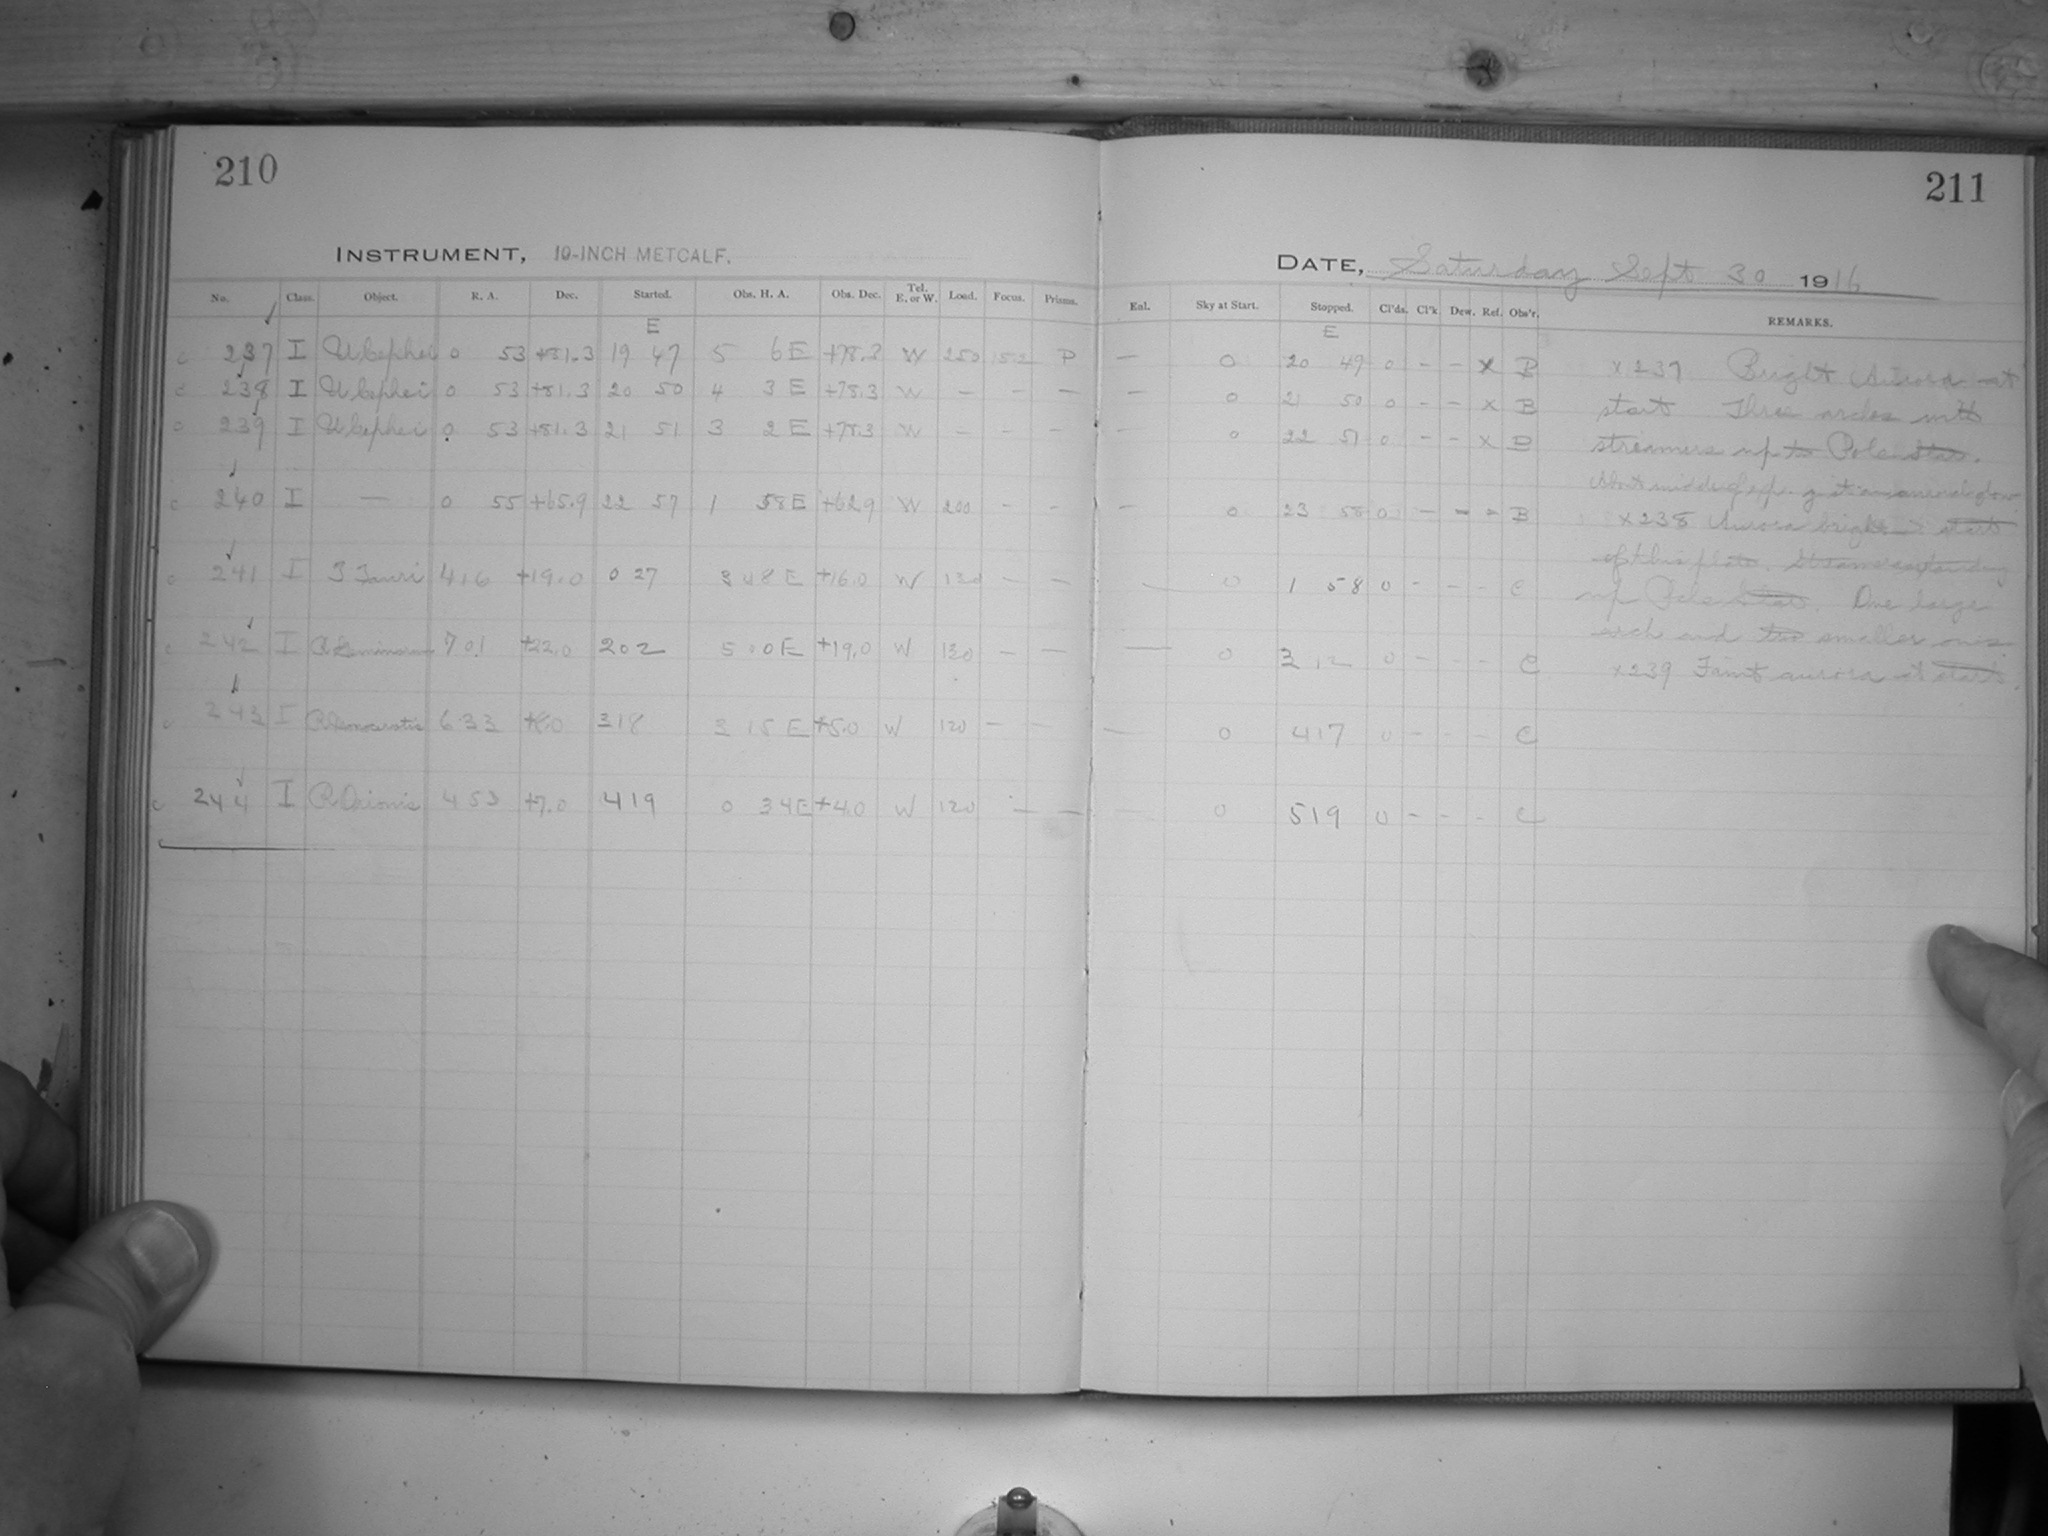 210
211
INSTRUMENT, 10-INCH METCALF.
DATE, Saturday Sept 30 1916
No. Class. Object. R. A. Dec. Started. Obs. H. A. Obs. Dec. Tel. E. or W. Load. Focus. Prisms. Enl. Sky at Start. Stopped. Cl'ds. Cl'k. Dew. Ref. Obs'r. REMARKS.
E E
c 237 I U Cephei 0 53 +81.3 19 47 5 6 E +78.3 W 250 15.2 P — 0 20 49 0 - - x B x 237 Bright Aurora at
c 238 I U Cephei 0 53 +81.3 20 50 4 3 E +78.3 W — — — — 0 21 50 0 - - x B start Three arches with
c 239 I U Cephei 0 53 +81.3 21 51 3 2 E +78.3 W — — — — 0 22 51 0 - - x B streamers up to Pole Star.
About middle of exp.
c 240 I — 0 55 +65.9 22 57 1 58 E +62.9 W 200 - - — 0 23 58 0 - - - B x 238 Aurora bright at start
of this plate. Streamers extending
c 241 I T Tauri 4 16 +19.0 0 27 3 48 E +16.0 W 130 — — — 0 1 58 0 - - - C up Pole Star. One large
arch and two smaller ones.
c 242 I R Geminorum 7 01 +22.0 2 02 5 0 E +19.0 W 130 — — — 0 3 12 0 - - - C x 239 Faint aurora at start.
c 243 I R Monocerotis 6 33 +8.0 3 18 3 15 E +5.0 W 120 — — — 0 4 17 0 - - - C
c 244 I R Orionis 4 53 +7.0 4 19 0 34 E +4.0 W 120 — — — 0 5 19 0 - - - C